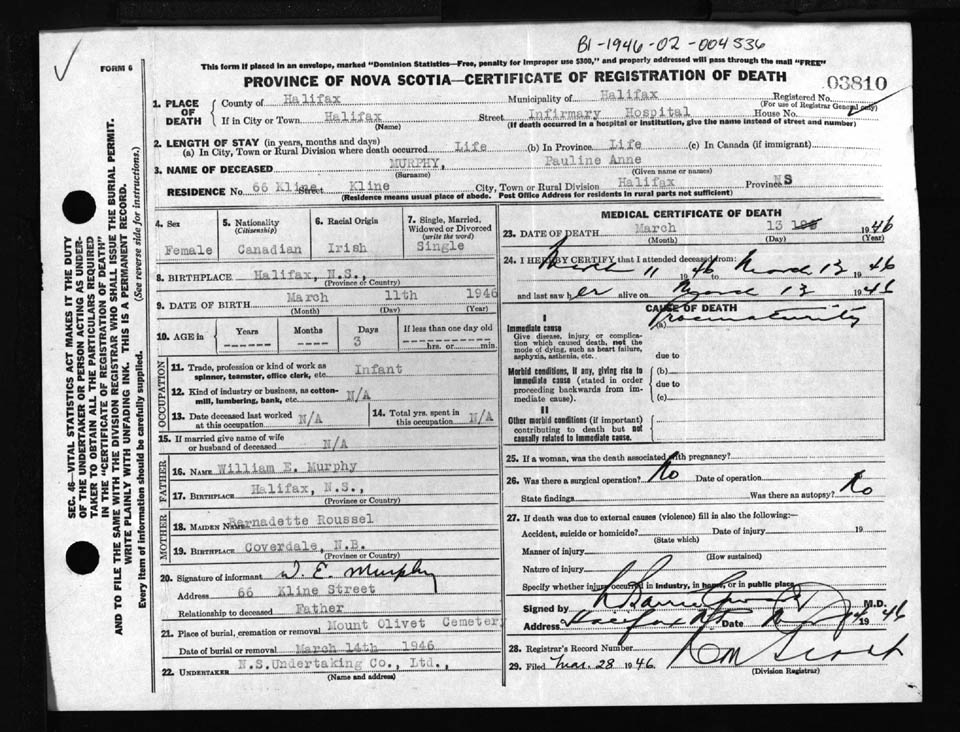 B1-1946-02-004536
FORM 6
This form if placed in an envelope, marked "Dominion Statistics—Free, penalty for improper use $300," and properly addressed will pass through the mail "FREE"
PROVINCE OF NOVA SCOTIA—CERTIFICATE OF REGISTRATION OF DEATH
03810
1. PLACE OF DEATH County of Halifax Municipality of Halifax Registered No.
(For use of Registrar General only)
If in City or Town Halifax Street Infirmary Hospital House No.
(Name) (If death occurred in a hospital or institution, give the name instead of street and number)
2. LENGTH OF STAY (in years, months and days)
(a) In City, Town or Rural Division where death occurred Life (b) In Province Life (c) In Canada (if immigrant)
3. NAME OF DECEASED MURPHY, Pauline Anne
(Surname) (Given name or names)
RESIDENCE No. 66 Kline Street Kline City, Town or Rural Division Halifax Province NS
(Residence means usual place of abode. Post Office Address for residents in rural parts not sufficient)
4. Sex 5. Nationality (Citizenship) 6. Racial Origin 7. Single, Married, Widowed or Divorced (write the word)
Female Canadian Irish Single
8. BIRTHPLACE Halifax, N.S.,
(Province or Country)
9. DATE OF BIRTH March 11th 1946
(Month) (Day) (Year)
10. AGE in Years Months Days If less than one day old
------ ------ 3 hrs. or min.
OCCUPATION
11. Trade, profession or kind of work as spinner, teamster, office clerk, etc. Infant
12. Kind of industry or business, as cotton-mill, lumbering, bank, etc. N/A
13. Date deceased last worked at this occupation N/A 14. Total yrs. spent in this occupation N/A
15. If married give name of wife or husband of deceased N/A
FATHER
16. NAME William E. Murphy
17. BIRTHPLACE Halifax, N.S.,
(Province or Country)
MOTHER
18. MAIDEN NAME Bernadette Roussel
19. BIRTHPLACE Coverdale, N.B.
(Province or Country)
20. Signature of informant W. E. Murphy
Address 66 Kline Street
Relationship to deceased Father
21. Place of burial, cremation or removal Mount Olivet Cemetery
Date of burial or removal March 14th 1946
22. UNDERTAKER N.S.Undertaking Co., Ltd.,
(Name and address)
MEDICAL CERTIFICATE OF DEATH
23. DATE OF DEATH March 13 1946
(Month) (Day) (Year)
24. I HEREBY CERTIFY that I attended deceased from:
March 11 1946 to March 13 1946
and last saw her alive on March 13 1946
CAUSE OF DEATH
I
Immediate cause (a) Prematurity
Give disease, injury or complication which caused death, not the mode of dying, such as heart failure, asphyxia, asthenia, etc.
due to
Morbid conditions, if any, giving rise to immediate cause (stated in order proceeding backwards from immediate cause) (b)
due to
(c)
II
Other morbid conditions (if important) contributing to death but not causally related to immediate cause.
25. If a woman, was the death associated with pregnancy?
26. Was there a surgical operation? No Date of operation
State findings Was there an autopsy? No
27. If death was due to external causes (violence) fill in also the following:—
Accident, suicide or homicide? Date of injury 19
(State which)
Manner of injury
(How sustained)
Nature of injury
Specify whether injury occurred in industry, in home, or in public place
Signed by M.D.
Address Halifax NS Date 1946
28. Registrar's Record Number
29. Filed Mar. 28 1946
(Division Registrar)
SEC. 46—VITAL STATISTICS ACT MAKES IT THE DUTY
OF THE UNDERTAKER OR PERSON ACTING AS UNDER-
TAKER TO OBTAIN ALL THE PARTICULARS REQUIRED
IN THE "CERTIFICATE OF REGISTRATION OF DEATH"
AND TO FILE THE SAME WITH THE DIVISION REGISTRAR WHO SHALL ISSUE THE BURIAL PERMIT.
WRITE PLAINLY WITH UNFADING INK. THIS IS A PERMANENT RECORD.
Every item of information should be carefully supplied. (See reverse side for instructions.)